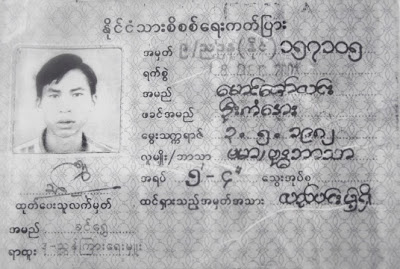 နိုင်ငံသားစိစစ်ရေးကတ်ပြား
အမှတ် ၉/ညဥန(နိုင်)၁၅၇၁၀၅
ရက်စွဲ
အမည် မောင်ဇော်လင်း
ဖခင်အမည် ဦးကံအေး
မွေးသက္ကရာဇ် ၃.၅.၁၉၈၂
လူမျိုး/ဘာသာ ဗမာ/ဗုဒ္ဓဘာသာ
အရပ် ၅-၄" သွေးအုပ်စု
ထင်ရှားသည့်အမှတ်အသား
ထုတ်ပေးသူလက်မှတ်
အမည် ခင်ရွှေ
ရာထူး ဒု-ညွှန်ကြားရေးမှူး